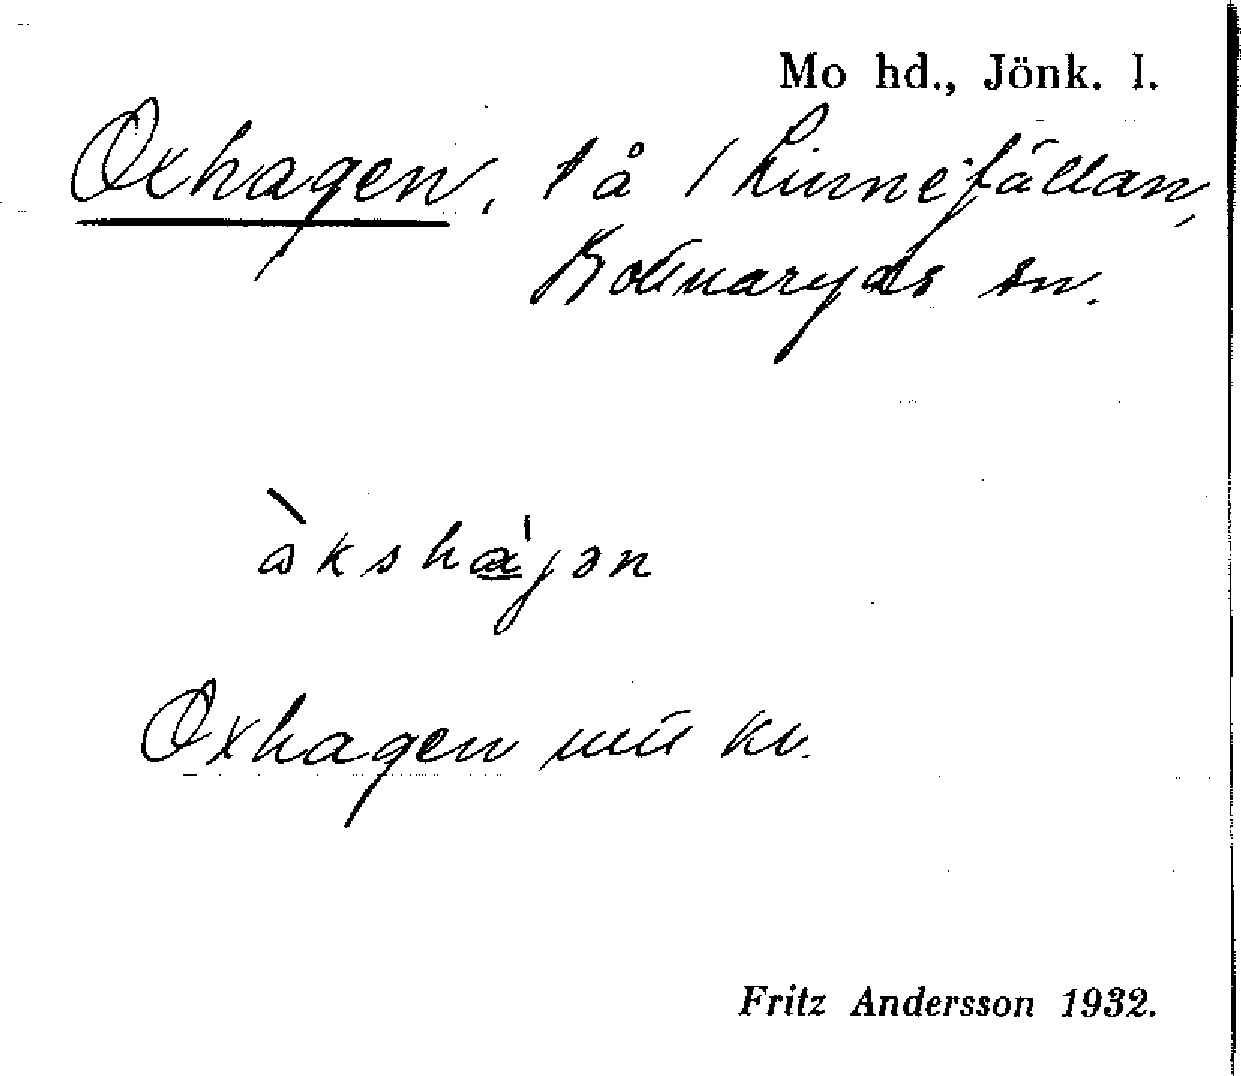 Mo hd., Jönk. l.
Oxhagen, 1 å 1 Linnefällan,
Bottnaryds sn.
åkshajən
Oxhagen
Fritz Andersson 1932.